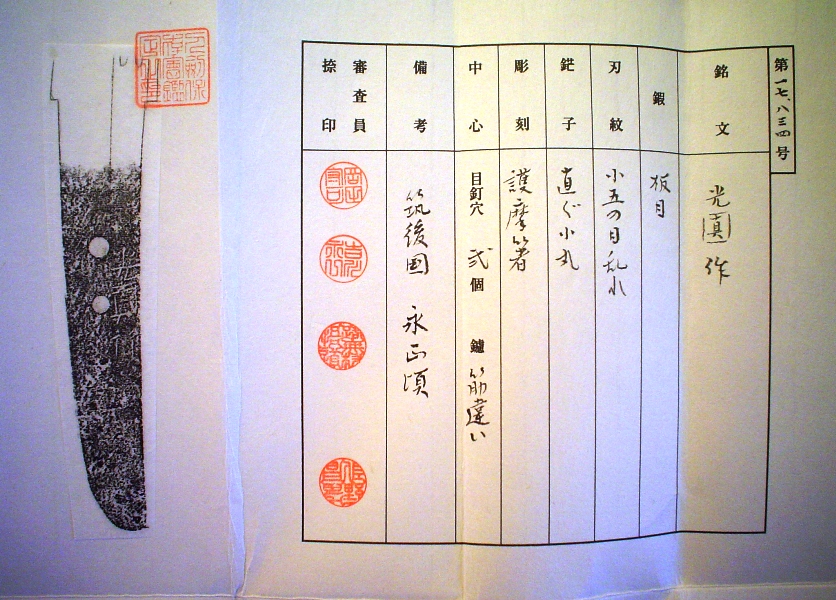 第一七、八三四号
銘文
光圓作
鍜
板目
刃紋
小五の目乱れ
鋩子
直ぐ小丸
彫刻
護摩箸
中心
目釘穴 弐個 鑢 筋違い
備考
筑後国 永正頃
審査員
捺印